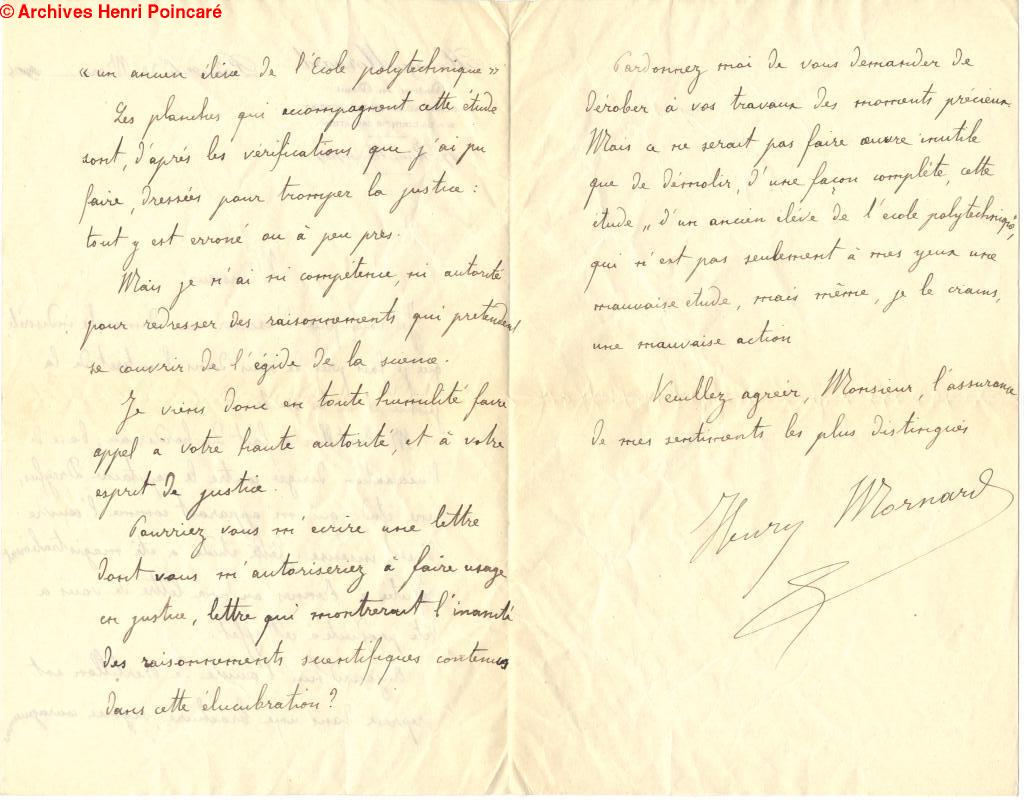 © Archives Henri Poincaré
« un ancien élève de l'Ecole polytechnique »
Les planches qui accompagnent cette étude
sont, d'après les vérifications que j'ai pu
faire, dressées pour tromper la justice :
tout y est erroné ou à peu près.
Mais je n'ai ni compétence, ni autorité
pour redresser des raisonnements qui prétendent
se couvrir de l'égide de la science.
Je viens donc en toute humilité faire
appel à votre haute autorité, et à votre
esprit de justice.
Pourriez vous m'écrire une lettre
dont vous m'autoriseriez à faire usage
en justice, lettre qui montrerait l'inanité
des raisonnements scientifiques contenus
dans cette élucubration ?
Pardonnez moi de vous demander de
dérober à vos travaux des moments précieux.
Mais ce ne serait pas faire œuvre inutile
que de démolir, d'une façon complète, cette
étude „ d'un ancien élève de l'école polytechnique",
qui n'est pas seulement à mes yeux une
mauvaise étude, mais même, je le crains,
une mauvaise action
Veuillez agréer, Monsieur, l'assurance
de mes sentiments les plus distingués
Henry Mornard